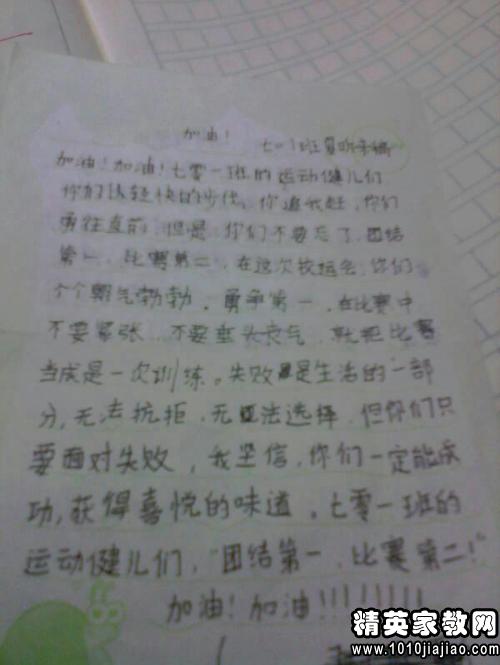 加油！ 七〇1班
加油！加油！七零一班的运动健儿们
你们以轻快的步伐，你追我赶，你们
勇往直前，但是，你们不要忘了，团结
第一，比赛第二，在这次校运会，你们
个个朝气勃勃，勇争第一，在比赛中
不要紧张，不要垂头丧气，就把比赛
当成是一次训练。失败是生活的一部
分，无法抗拒，无法选择，但你们只
要面对失败，我坚信，你们一定能成
功，获得喜悦的味道。七零一班的
运动健儿们，"团结第一，比赛第二！"
加油！加油！！！！！！！！
精英家教网
www.1010jiajiao.com